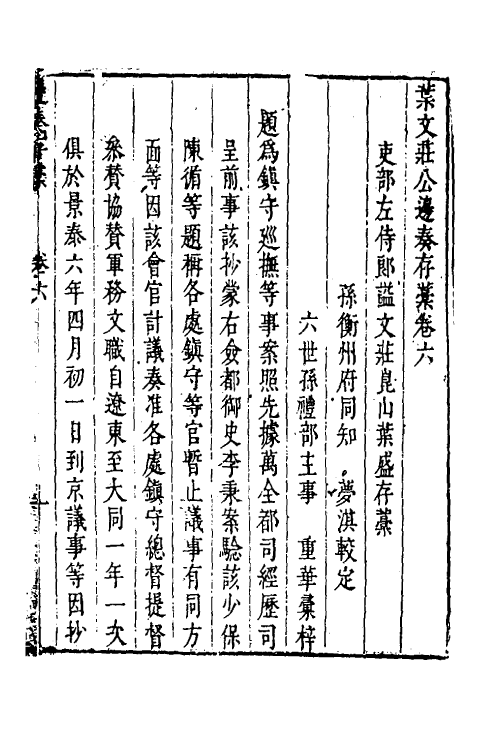 葉文莊公邊奏存藁卷六
吏部左侍郎謚文莊崑山葉盛存藁
孫衡州府同知夢淇較定
六世孫禮部主事重華彙梓
題爲鎮守巡撫等事案照先據萬全都司經歷司
呈前事該抄蒙右僉都御史李秉案驗該少保
陳循等題稱各處鎮守等官暫止議事有同方
面等因該會官計議奏准各處鎮守總督提督
叅贊協贊軍務文職自遼東至大同一年一次
俱於景泰六年四月初一日到京議事等因抄
卷六